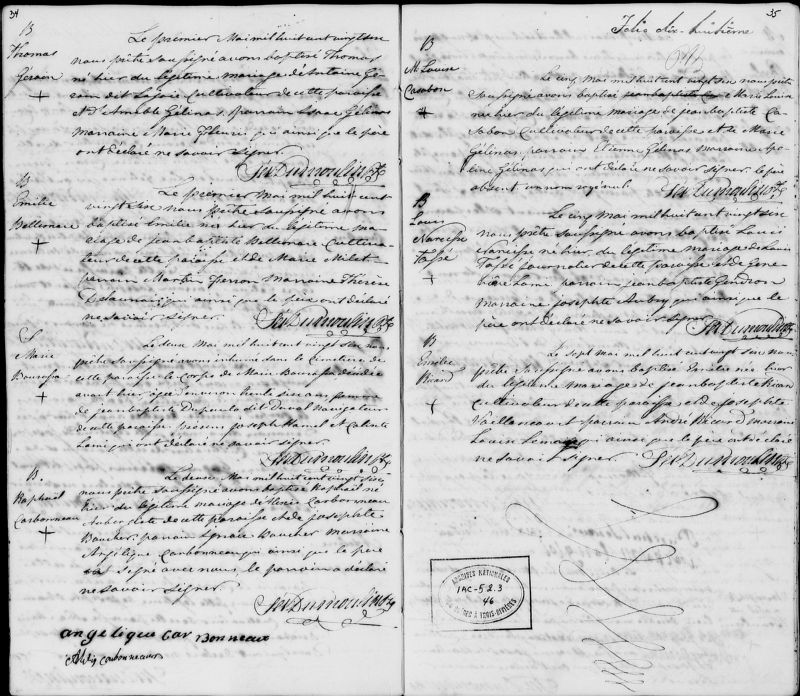 34
B
Thomas
Gérain
+
Le premier Mai mil huit cent vingt six
nous prêtre soussigné avons baptisé Thomas
né hier du légitime mariage d'Antoine
dit Lépine Cultivateur de cette paroisse
et d'Amable Gélinas, parrain Isaac Gélinas
marraine Marie qui ainsi que le père
ont déclaré ne savoir signer.
Sév Dumoulin Ptr
B
Emilie
Bellemare
+
Le premier Mai mil huit cent
vingt six nous prêtre soussigné avons
baptisé Emilie née hier du légitime ma
riage de jean baptiste Bellemare Cultiva
teur de cette paroisse et de Marie Milet
parrain Martin marraine Thérèse
qui ainsi que le père ont déclaré
ne savoir signer.
Sév Dumoulin Ptr
S
Marie
Bourassa
+
Le deux Mai mil huit cent vingt six nous
prêtre soussigné avons inhumé dans le Cimetière de
cette paroisse le Corps de Marie Bourassa décédée
avant hier âgée d'environ trente six ans femme
de jean baptiste dit Duval Navigateur
de cette paroisse, présens joseph Hamel et
qui ont déclaré ne savoir signer
Sév Dumoulin Ptr
B.
Raphael
Carbonneau
+
Le deux Mai mil huit cent vingt six
nous prêtre soussigné avons baptisé Raphaël né
hier du légitime mariage de Carbonneau
de cette paroisse et de josephte
Boucher, parrain Ignace Boucher marraine
Angélique Carbonneau qui ainsi que le père
ont signé avec nous le parrain a déclaré
ne savoir signer
Sév Dumoulin Ptr
angelique Carbonneaux
Carbonneaux
35
Folio dix-huitième
B
M. Louise
Casabon
+
Le cinq Mai mil huit cent vingt six nous prêtre
soussigné avons baptisé jean baptiste Marie Louise
née hier du légitime mariage de jean baptiste Ca
sabon Cultivateur de cette paroisse et de Marie
Gélinas, parrain Etienne Gélinas marraine
Gélinas qui ont déclaré ne savoir signer. le père
absent un nom rayé nul.
Sév Dumoulin Ptr
B
Louis
Narcisse
Tassé
+
Le cinq Mai mil huit cent vingt six
nous prêtre soussigné avons baptisé Louis
Narcisse né hier du légitime mariage de Louis
Tassé journalier de cette paroisse et de Gene
viève Lami parrain jean baptiste Gendron
marraine josephte Aubry qui ainsi que le
père ont déclaré ne savoir signer
Sév Dumoulin Ptr
B
Emilie
Ricard
+
Le sept Mai mil huit cent vingt six nous
prêtre soussigné avons baptisé Emilie née hier
du légitime mariage de jean baptiste Ricard
Cultivateur de cette paroisse et de josephte
Vaillancourt parrain André Ricard marraine
Louise qui ainsi que le père ont déclaré
ne savoir signer.
Sév Dumoulin Ptr
ARCHIVES NATIONALES
IAC-523
46
DU QUÉBEC À TROIS-RIVIÈRES